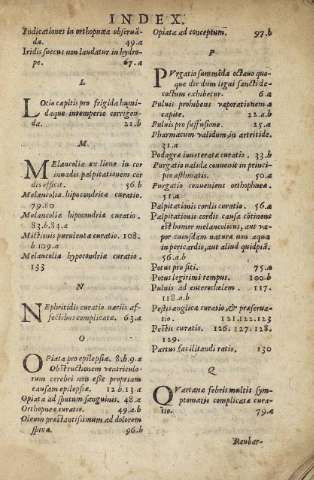 INDEX.
Indicationes in orthopnœa obseruã-
dæ. 49.a
Iridis succus non laudatur in hydro-
pe. 67.a
L
Lotio capitis pro frigida humi-
daque intemperie corrigen-
da. 22.b
M
Melancolia ex liene in cor
inuadit palpitationem cor
dis efficit. 56.b
Melancolia hipocondrica curatio.
79.80
Melancolia hypocondria curatio.
83.b.84.a
Mictionis purulentæ curatio. 108.
b.109.a
Melancolia hypocondrica curatio.
133
N
Nephritidis curatio variis af-
fectibus complicatæ. 63.a
O
Opiata pro epilepsia. 8.b.9.a
Obstructionem ventriculo-
rum cerebri non esse propriam
causam epilepsiæ. 12.b.13.a
Opiata ad sputum sanguinis. 48.a
Orthopnœæ curatio. 49.a.b
Oleum præstantissimum ad dolorem
96.b
Opiata ad conceptum. 97.b
P
Purgatio summoda octauo quo-
que die dum ligni sancti de-
coctum exhibetur. 6.a
Puluis prohibens vaporationem a
capite. 22.a.b
Puluis pro suffusione. 25.a
Pharmacum validum in arteritide.
31.a
Podagræ inueteratæ curatio. 33.b
Purgatio valida conuenit in princi-
pio asthmatis. 50.a
Purgatio conueniens orthophnœæ.
51.a
Palpitationis cordis curatio. 56.a
Palpitationis cordis causa cõtinens
est humor melancolicus, aut va-
por eiusdem natura aut aqua
in pericardio, aut aliud quidpiã.
56.a.b
Potus pro siti. 75.a
Potus legitimi tempus. 100.b
Puluis ad enterocelem. 117.
118.a.b
Pestis angicæ curatio & præserua-
tio. 121.122.123
Pestis curatio. 126.127.128.
129.
Partus facilitandi ratio. 130
Q
Quartana febris multis sym-
ptomatis complicatæ cura-
tio. 79.a
Reubar-